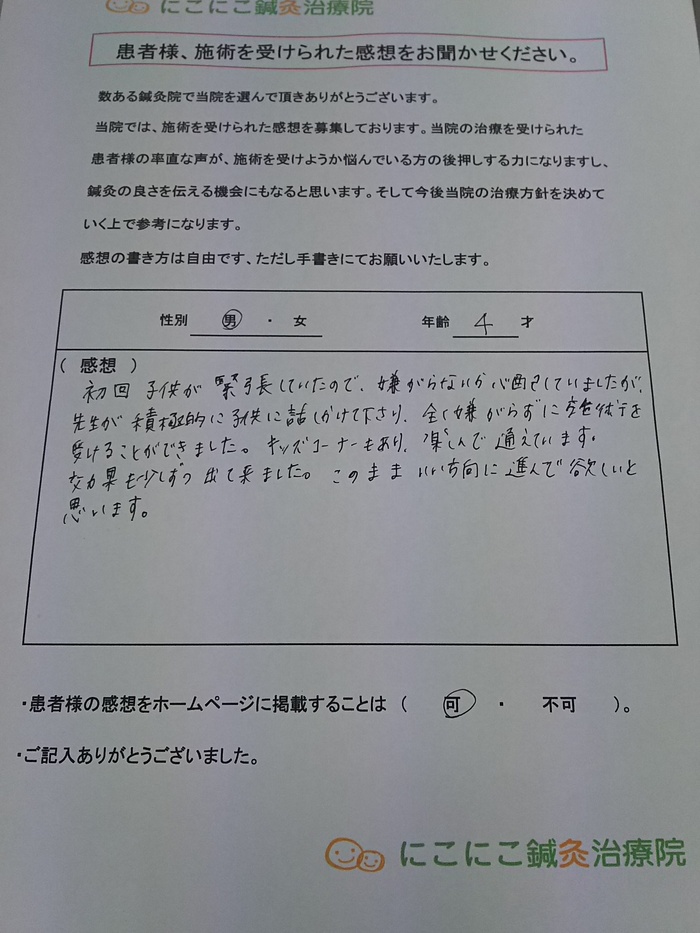 にこにこ鍼灸治療院
患者様、施術を受けられた感想をお聞かせください。
数ある鍼灸院で当院を選んで頂きありがとうございます。
当院では、施術を受けられた感想を募集しております。当院の治療を受けられた
患者様の率直な声が、施術を受けようか悩んでいる方の後押しする力になりますし、
鍼灸の良さを伝える機会にもなると思います。そして今後当院の治療方針を決めて
いく上で参考になります。
感想の書き方は自由です、ただし手書きにてお願いいたします。
性別 男 ・ 女 年齢 4 才
( 感想 )
初回 子供が 緊張していたので、嫌がらないか心配していましたが、
先生が 積極的に子供に話しかけて下さり、全く嫌がらずに施術を
受けることができました。キッズコーナーもあり、楽しんで通えています。
効果も少しずつ出て来ました。このまま いい方向に進んで欲しいと
思います。
・患者様の感想をホームページに掲載することは ( 可 ・ 不可 )。
・ご記入ありがとうございました。
にこにこ鍼灸治療院